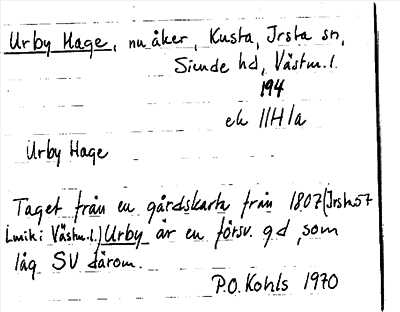 Urby Hage, nu åker, Kusta, Irsta sn,
Siende hd, Västm. l.
194
ek 11H1a
Urby Hage
Taget från en gårdskarta från 1807 (Irsta 57
Lmk i Västm. l.) Urby är en försv. gd, som
låg SV därom.
P.O. Kohls 1970